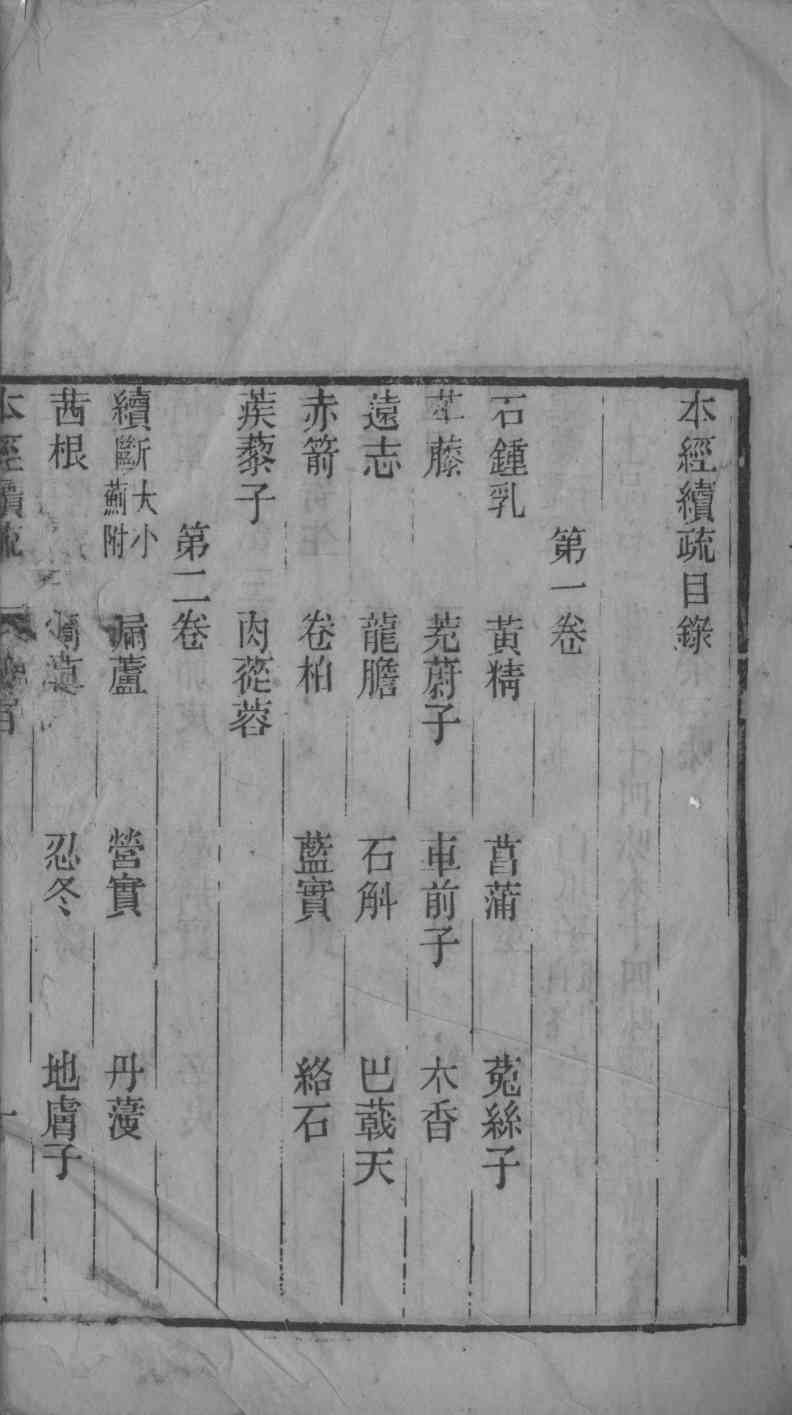 本經續疏目錄
第一卷
石鍾乳 黃精 菖蒲 菟絲子
牛膝 茺蔚子 車前子 木香
遠志 龍膽 石斛 巴戟天
赤箭 卷柏 藍實 絡石
蒺藜子 肉蓯蓉
第二卷
續斷大小薊附 漏蘆 營實 丹蔆
茜根 忍冬 地膚子
本經續疏